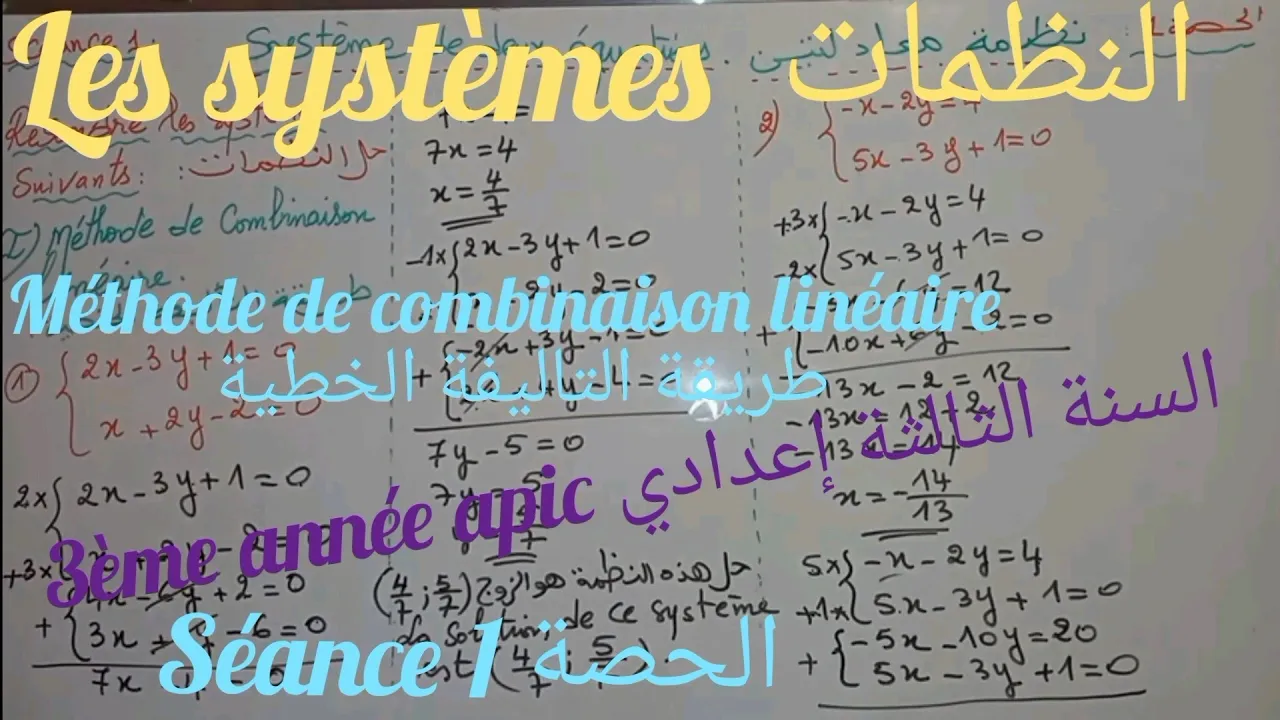 Les systèmes النظمات
Méthode de combinaison linéaire
طريقة التاليفة الخطية
3ème année apic السنة الثالثة إعدادي
Séance 1 الحصة
Séance 1:
Système de deux équations. نظمة معادلتين
الحصة 1:
Résoudre les
Suivants: حل النظمات:
I) Méthode de Combinaison
① { 2x-3y+1=0
x+2y-2=0
2x { 2x-3y+1=0
+3x
4x-6y+2=0
+ { 3x + 6y-6=0
7x
7x=4
x=4/7
-1x { 2x-3y+1=0
-2x+3y-1=0
+
7y-5=0
حل هذه النظمة هو الزوج (4/7 ; 5/7)
la solution de ce système
est (4/7 ; 5/7).
2) { -x-2y=4
5x-3y+1=0
+3x { -x-2y=4
-2x { 5x-3y+1=0
+ { -10x+6y-2=0
-13x-2=12
-13x=12+2
-13x=14
x=-14/13
5x { -x-2y=4
+1x { 5x-3y+1=0
+ { -5x-10y=20
5x-3y+1=0